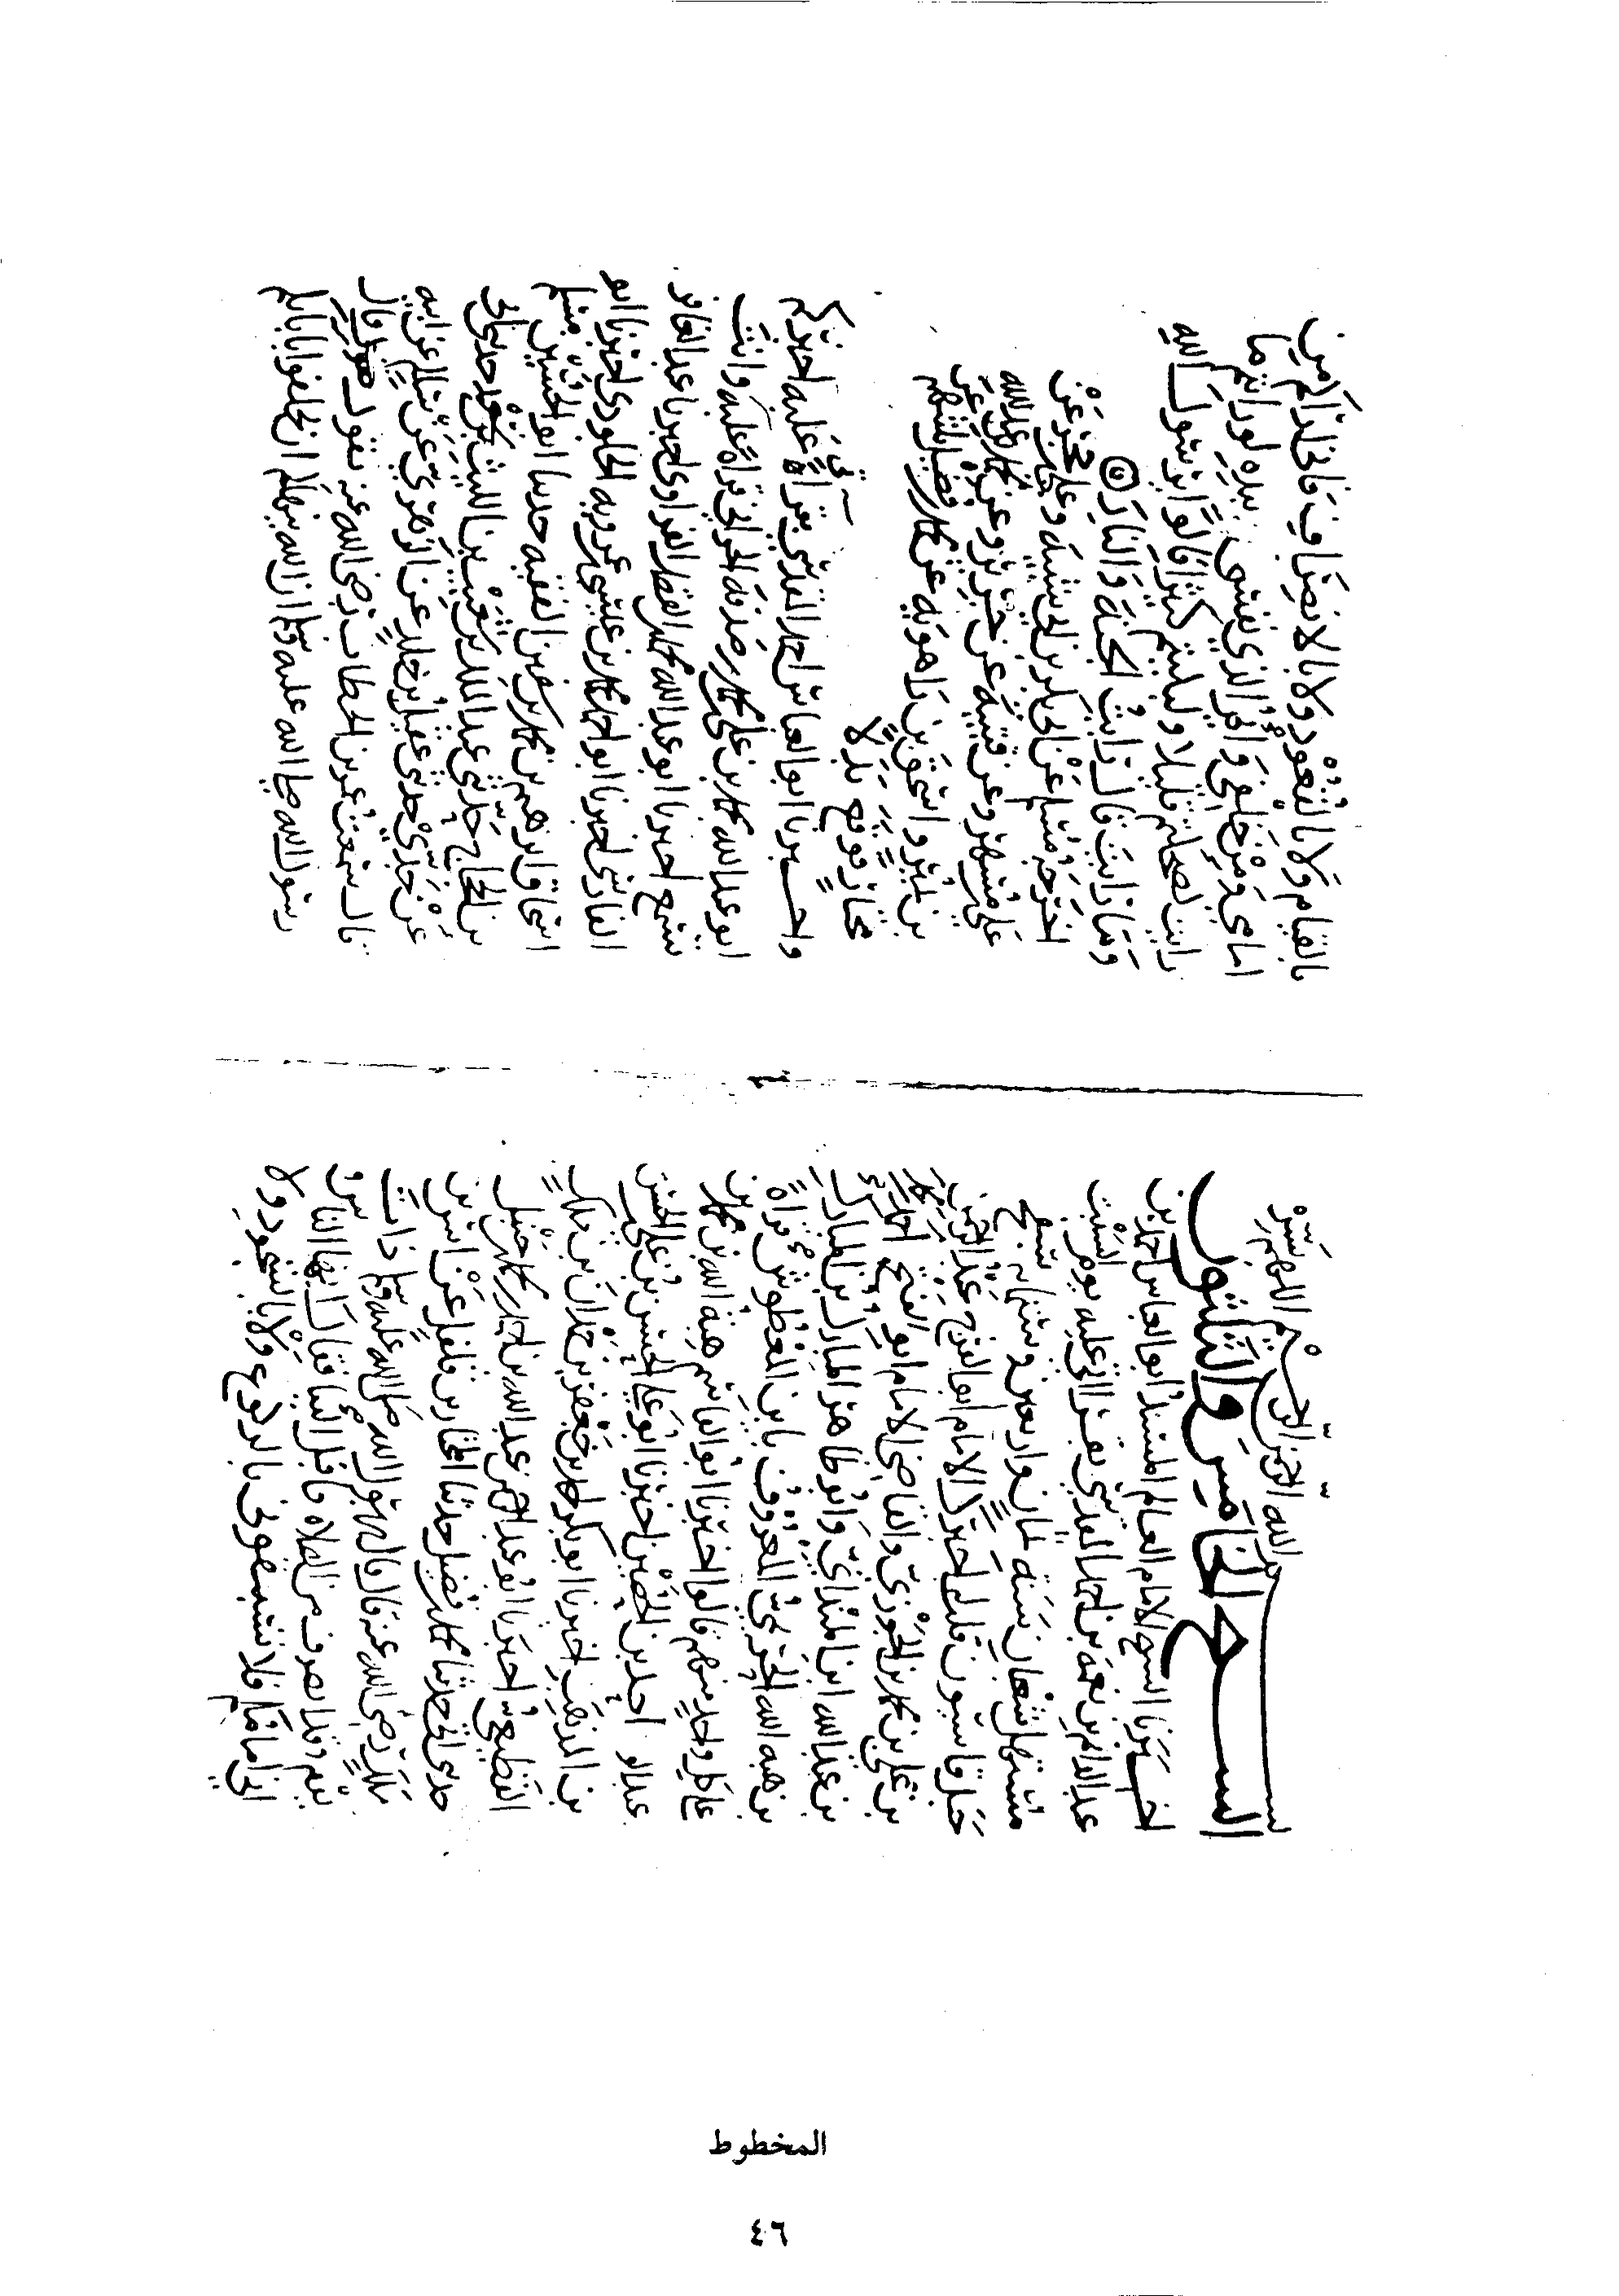 بسم الله الرحمن الرحيم اللهم يسر
الشيخ الخامس والثلثون
اخبرنا الشيخ الامام العالم المسند ابو العباس احمد بن
عبد الدايم بن نعمة بن احمد المقدسي بقراتي عليه يوم السبت
مستهل شعبان سنة ثمان واربعين وستمايه بسفح
جبل قاسيون قلت له اخبركم الامام ابو الفرج عبد الرحمن
بن علي بن محمد بن الجوزي والقاضي الامام ابو الفتح محمد بن احمد
المندائي وابو طاهر المبارك بن المبارك
بن هبة الله الحريمي المعروف بابن المعطوش قراءة
على كل واحد منهم قالوا اخبرنا ابو القاسم هبة الله بن محمد بن
عبد الواحد احمد بن الحصين اخبرنا ابو علي الحسن بن علي
بن المذهب اخبرنا ابو بكر احمد بن جعفر بن حمدان بن ملك
القطيعي اخبرنا ابو عبد الرحمن عبد الله بن احمد بن محمد بن حنبل
حدثني ابي حدثنا محمد بن فضيل حدثنا المختار بن فلفل عن انس بن
ملك رضي الله عنه قال قال رسول الله صلى الله عليه وسلم ذات
يوم وقد انصرف من الصلاة فاقبل الينا فقال يا ايها الناس
اني امامكم فلا تسبقوني بالركوع ولا بالسجود ولا
بالقيام ولا بالقعود ولا بالانصراف فاني اراكم من
امامي ومن خلفي وايم الذي نفسي بيده لو رايتم ما
رايت لضحكتم قليلا ولبكيتم كثيرا قالوا يا رسول الله
وما رايت قال رايت الجنة والنار
اخرجه مسلم عن ابي بكر بن ابي شيبة وعلي بن حجر عن
علي بن مسهر وعن قتيبة عن جرير وعن محمد بن عبد الله
بن نمير واسحق بن راهويه عن محمد بن فضيل
فوقع بدلا
واخبرنا ابو العباس احمد المقدسي بقراءتي عليه اخبركم
ابو عبد الله محمد بن علي بن محمد بن صدقة الحراني قراءة عليه وانت
تسمع اخبرنا ابو عبد الله محمد بن الفضل الفراوي اخبرنا عبد الغافر
الفارسي اخبرنا ابو احمد محمد بن عيسى بن عمرويه الجلودي اخبرنا ابو
اسحاق ابرهيم بن محمد بن سفين الفقيه حدثنا ابو الحسين مسلم
بن الحجاج حدثني عبد الملك بن شعيب بن الليث بن سعد حدثني ابي
عن جدي حدثني عقيل بن خالد عن الزهري عن سالم عن ابيه
قال سمعت عمر بن الخطاب رضي الله عنه يقول قال
رسول الله صلى الله عليه وسلم ان الله ينهاكم ان تحلفوا بابايكم
المخطوط
٤٦